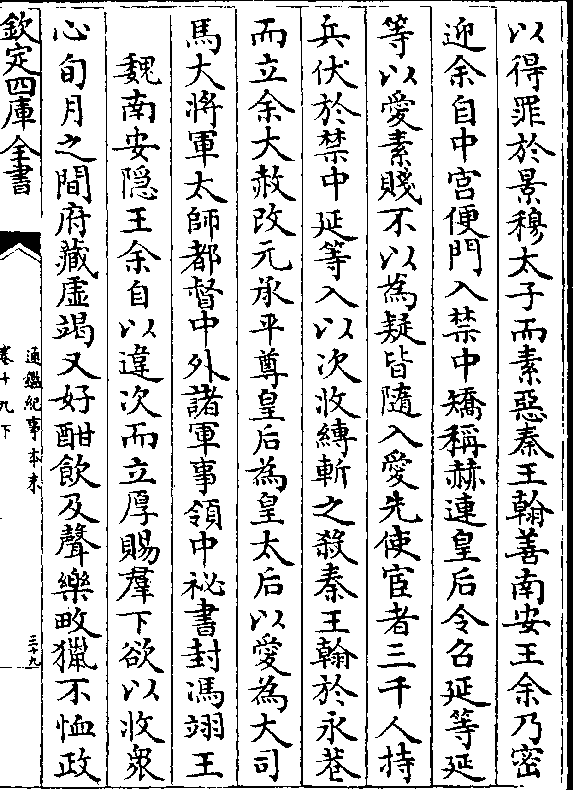 以得罪於景穆太子而素惡秦王翰善南安王余乃密
迎余自中宫便門入禁中矯稱赫連皇后令召延等延
等以愛素賤不以為疑皆隨入愛先使宦者三千人持
兵伏於禁中延等入以次收縛斬之殺秦王翰於永巷
而立余大赦改元承平尊皇后為皇太后以愛為大司
馬大將軍太師都督中外諸軍事領中祕書封馮翊王
魏南安隱王余自以違次而立厚賜羣下欲以收衆
心旬月之間府藏虛竭又好酣飲及聲樂畋獵不恤政
欽定四庫全書
通鑑紀事本末
卷十九下
三十九